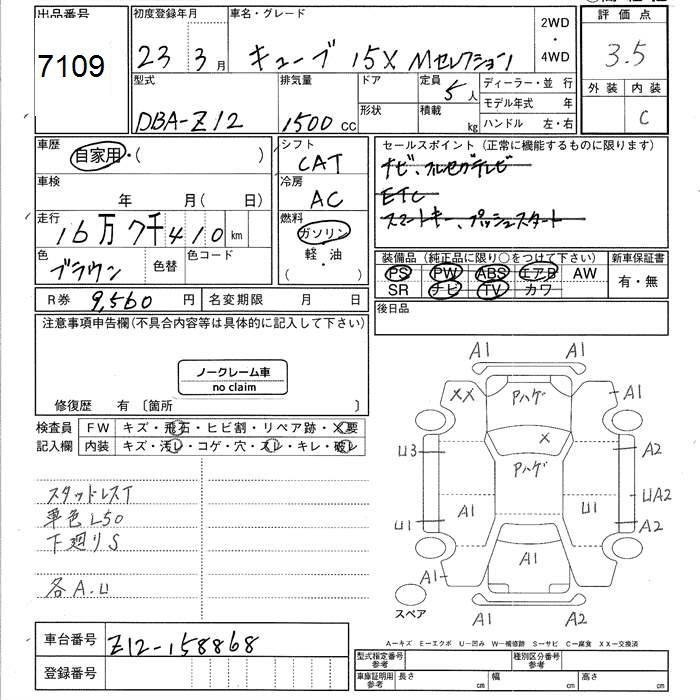 出品番号
7109
初度登録年月
23 3月
車名・グレード
キューブ 15X Mセレクション
2WD
・
4WD
評価点
3.5
外装 内装
C
型式
DBA-Z12
排気量
1500 cc
ドア
形状
定員
5人
積載
kg
ディーラー・並 行
モデル年式 年
ハンドル 左・右
車歴
自家用・( )
車検
年 月( 日)
走行
16万7千410km
色
ブラウン
色替
色コード
シフト
CAT
冷房
AC
燃料
ガソリン
軽・油
( )
セールスポイント(正常に機能するものに限ります)
ナビ、フルセグテレビ
ETC
スマートキー、プッシュスタート
装備品(純正品に限り○をつけて下さい)
PS PW ABS エアB AW
SR ナビ TV カワ
新車保証書
有・無
R券 9,560 円
名変期限 月 日
後日品
注意事項申告欄(不具合内容等は具体的に記入して下さい)
ノークレーム車
no claim
修復歴 有〔箇所 〕
検査員
記入欄
FW キズ・飛石・ヒビ割・リペア跡・X要
内装 キズ・汚レ・コゲ・穴・スレ・キレ・破レ
スタッドレスT
車色L50
下廻りS
各A.U
A1 A1
XX Aハゲ A1
X
U3 Aハゲ A2
UA2
A1 U1
U1 A2
A1
A1
A1 A2
スペア
A-キズ E-エクボ U-凹み W-補修跡 S-サビ C-腐食 XX-交換済
車台番号 Z12-158868
登録番号
型式指定番号
参考
種別区分番号
参考
車庫証明用
参考
長さ cm 幅 cm 高さ cm